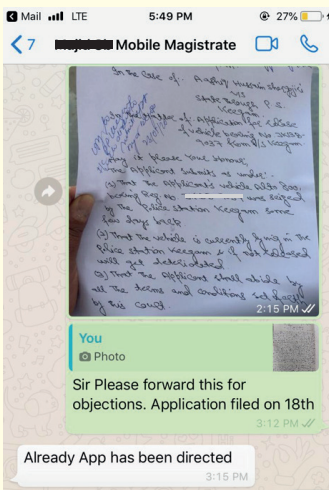 Mail LTE 5:49 PM 27%
7 Mobile Magistrate
In the Case of: Aashiq Hussain
V/S
State through P.S.
Keegam
of vehicle bearing No
May it please Your Honour,
The Applicant submits as under:
(1) That the Applicant's vehicle Alto 800,
bearing Reg no was seized
by the Police station Keegam some
few days back
(2) That the vehicle is currently lying in the
Police station Keegam & if not released
will get deteriorated
(3) That the Applicant shall abide by
all the terms and conditions set
by this Court.
2:15 PM
You
Photo
Sir Please forward this for
objections. Application filed on 18th
3:12 PM
Already App has been directed
3:15 PM